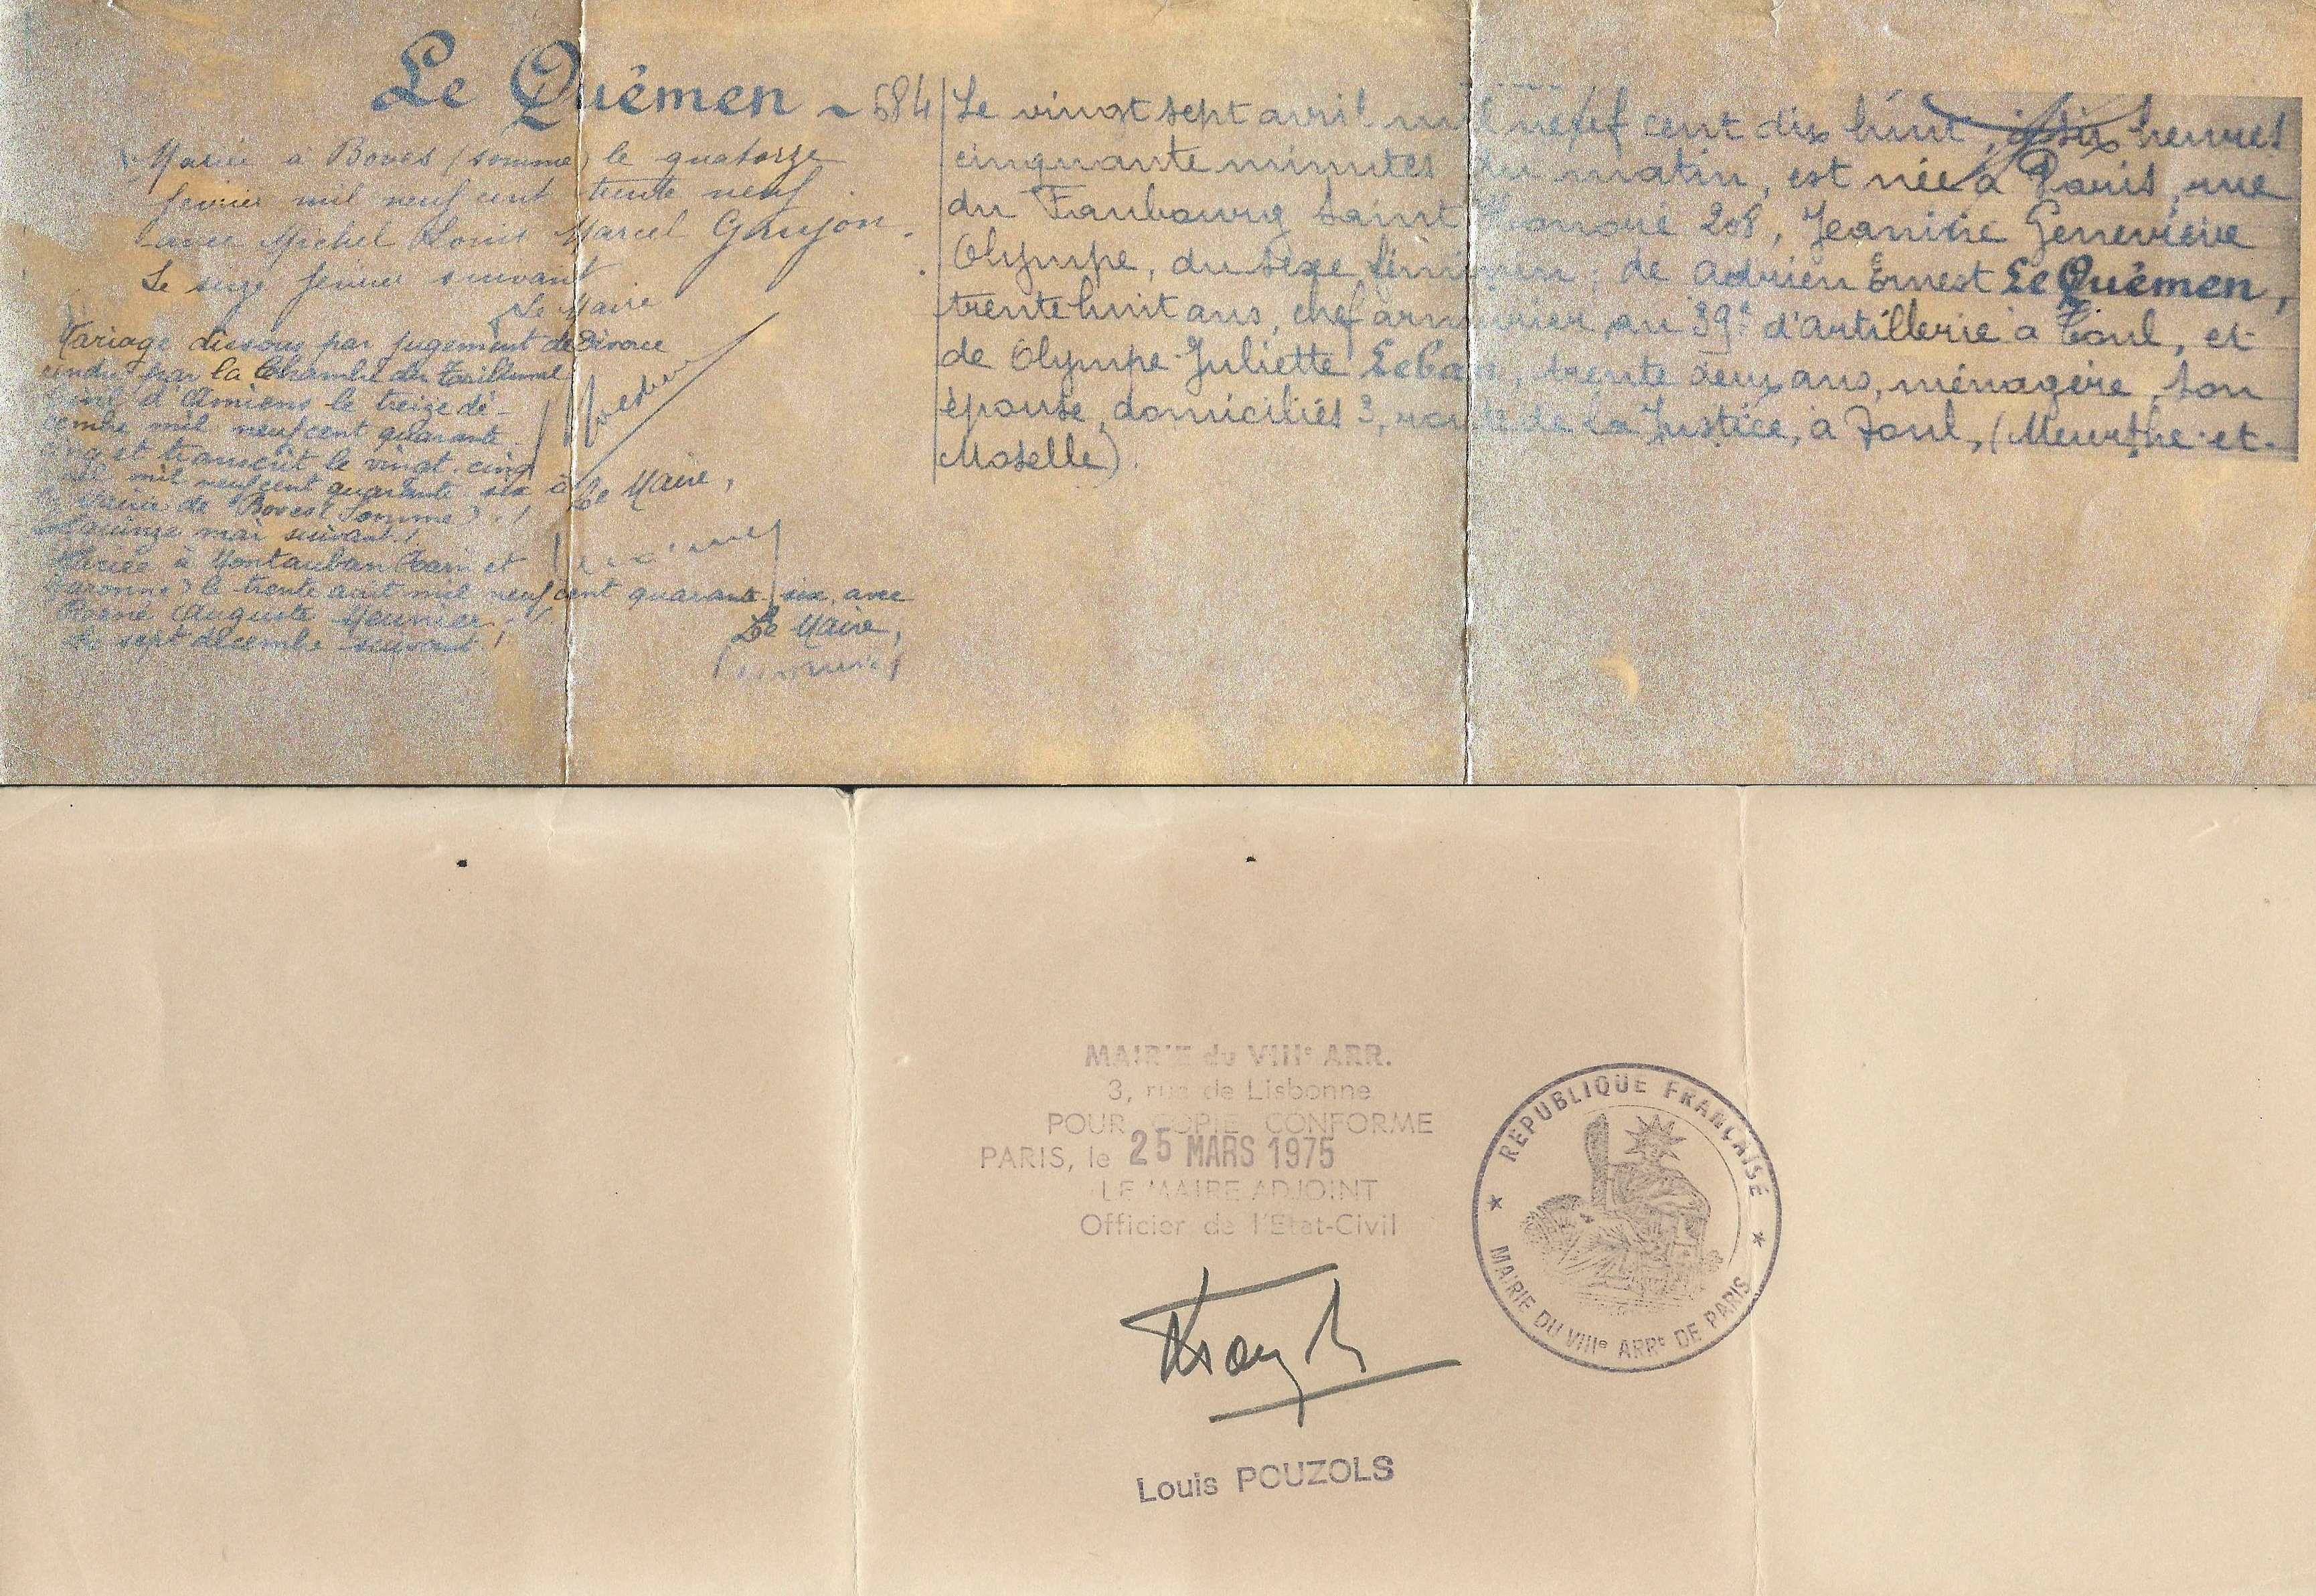 Le Quémen ~ 684
Mariée à Boves (Somme) le quatorze
février mil neuf cent trente neuf
avec Michel Louis Marcel Goujon.
Le seize février suivant
Le Maire
Mariage dissous par jugement de Divorce
rendu par la Chambre du Tribunal
d'Amiens le treize dé-
cembre mil neuf cent quarante-
cinq et transcrit le vingt-cinq
mil neuf cent quarante six à
la Mairie de Boves (Somme)./
quinze mai suivant./
Le Maire,
Mariée à Montauban (Tarn et
Garonne) le trente août mil neuf cent quarante-six, avec
René Auguste Meunier;
Le sept décembre suivant./
Le Maire,
Le vingt sept avril mil neuf cent dix huit, à six heures
cinquante minutes du matin, est née à Paris, rue
du Faubourg Saint Honoré 208, Jeanine Geneviève
Olympe, du sexe féminin; de Adrien Ernest Le Quémen,
trente huit ans, chef armurier au 39e d'artillerie à Toul, et
de Olympe Juliette, trente deux ans, ménagère, son
épouse, domiciliés 3, route de la Justice, à Toul, (Meurthe-et-
Moselle).
MAIRIE du VIIIe ARR.
3, rue de Lisbonne
POUR COPIE CONFORME
PARIS, le 25 MARS 1975
LE MAIRE ADJOINT
Officier de l'Etat-Civil
REPUBLIQUE FRANÇAISE
MAIRIE DU VIIIe ARRt DE PARIS
Louis POUZOLS